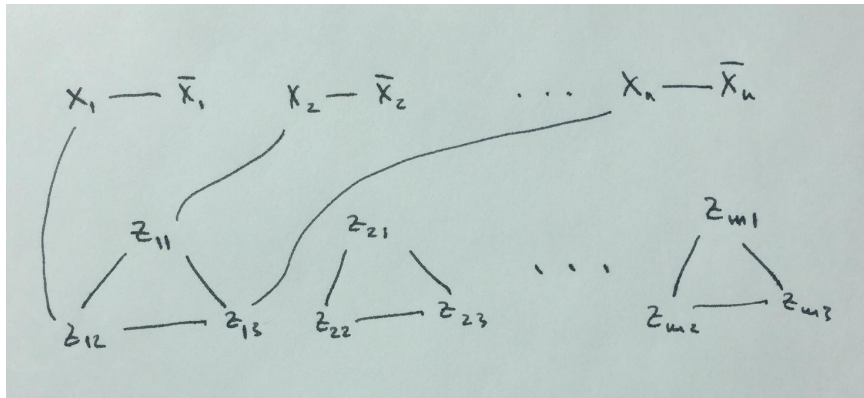 X₁ — X̅₁ X₂ — X̅₂ ... Xₙ — X̅ₙ
Z₁₁ Z₂₁ Zₘ₁
...
Z₁₂ Z₁₃ Z₂₂ Z₂₃ Zₘ₂ Zₘ₃